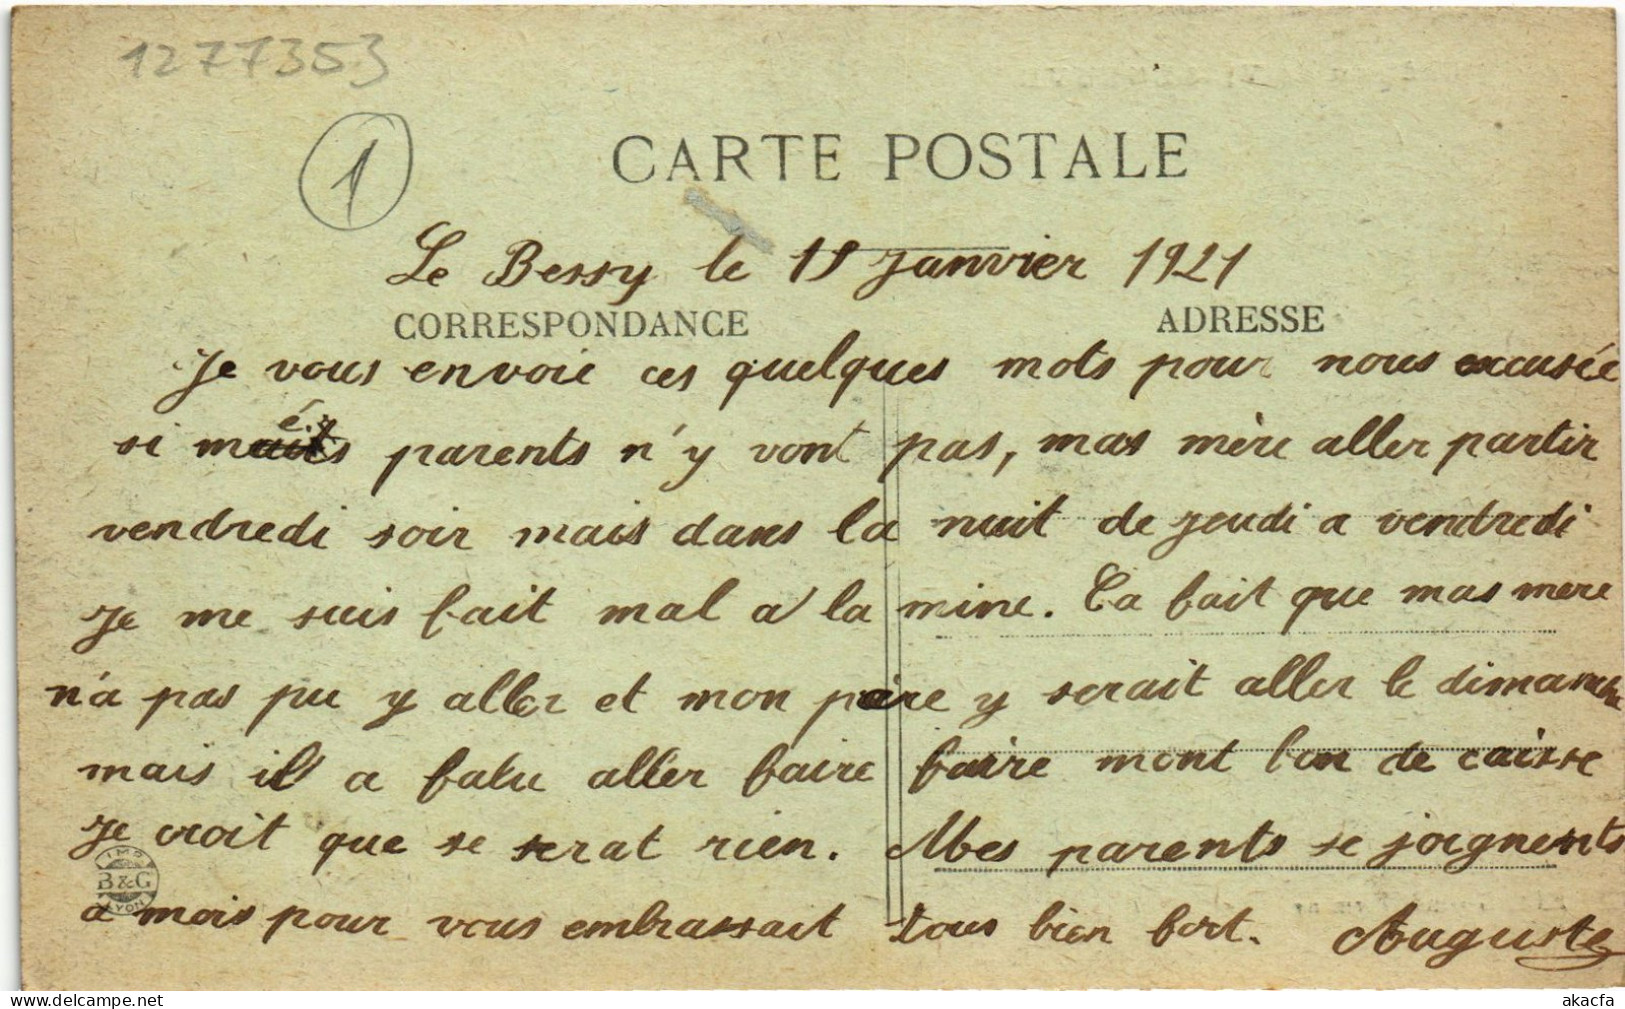 1277353
1
CARTE POSTALE
Le Bessy le 19 Janvier 1921
CORRESPONDANCE ADRESSE
Je vous envoie ces quelques mots pour nous excusée
si més parents n'y vont pas, mas mère aller partir
vendredi soir mais dans la nuit de jeudi a vendredi
Je me suis fait mal a la mine. Ca fait que mas mere
n'a pas pu y aller et mon père y serait aller le dimanche
mais il a falu aller faire faire mont bon de caisse
Je croit que se serat rien. Mes parents se joignents
a mois pour vous embrassait tous bien fort. Auguste
IMP
B&G
LYON
akacfa